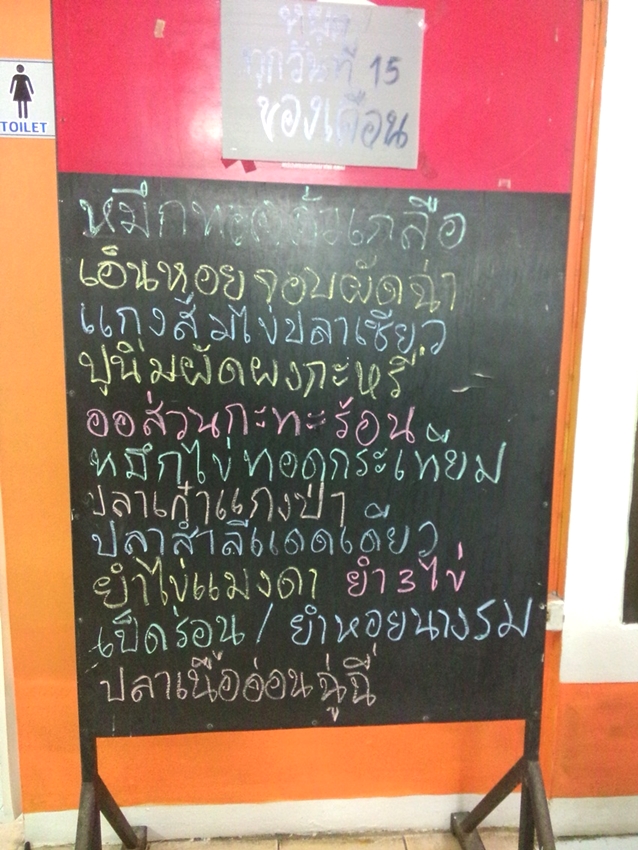 หยุด
ทุกวันที่ 15
ของเดือน
TOILET
หมึกทอดคั่วเกลือ
เอ็นหอยจอบผัดฉ่า
แกงส้มไข่ปลาเซียว
ปูนิ่มผัดผงกะหรี่
ออส่วนกะทะร้อน
หมึกไข่ทอดกระเทียม
ปลาเก๋าแกงป่า
ปลาสำลีแดดเดียว
ยำไข่แมงดา ยำ 3 ไข่
เป็ดร่อน / ยำหอยนางรม
ปลาเนื้ออ่อนฉู่ฉี่